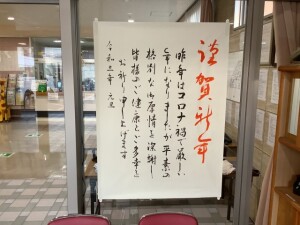 謹賀新年
昨年はコロナ禍で厳しい
年になりましたが平素の
格別なる御厚情を深謝し
皆様のご健康とご多幸を
お祈り申し上げます
令和三年 元旦